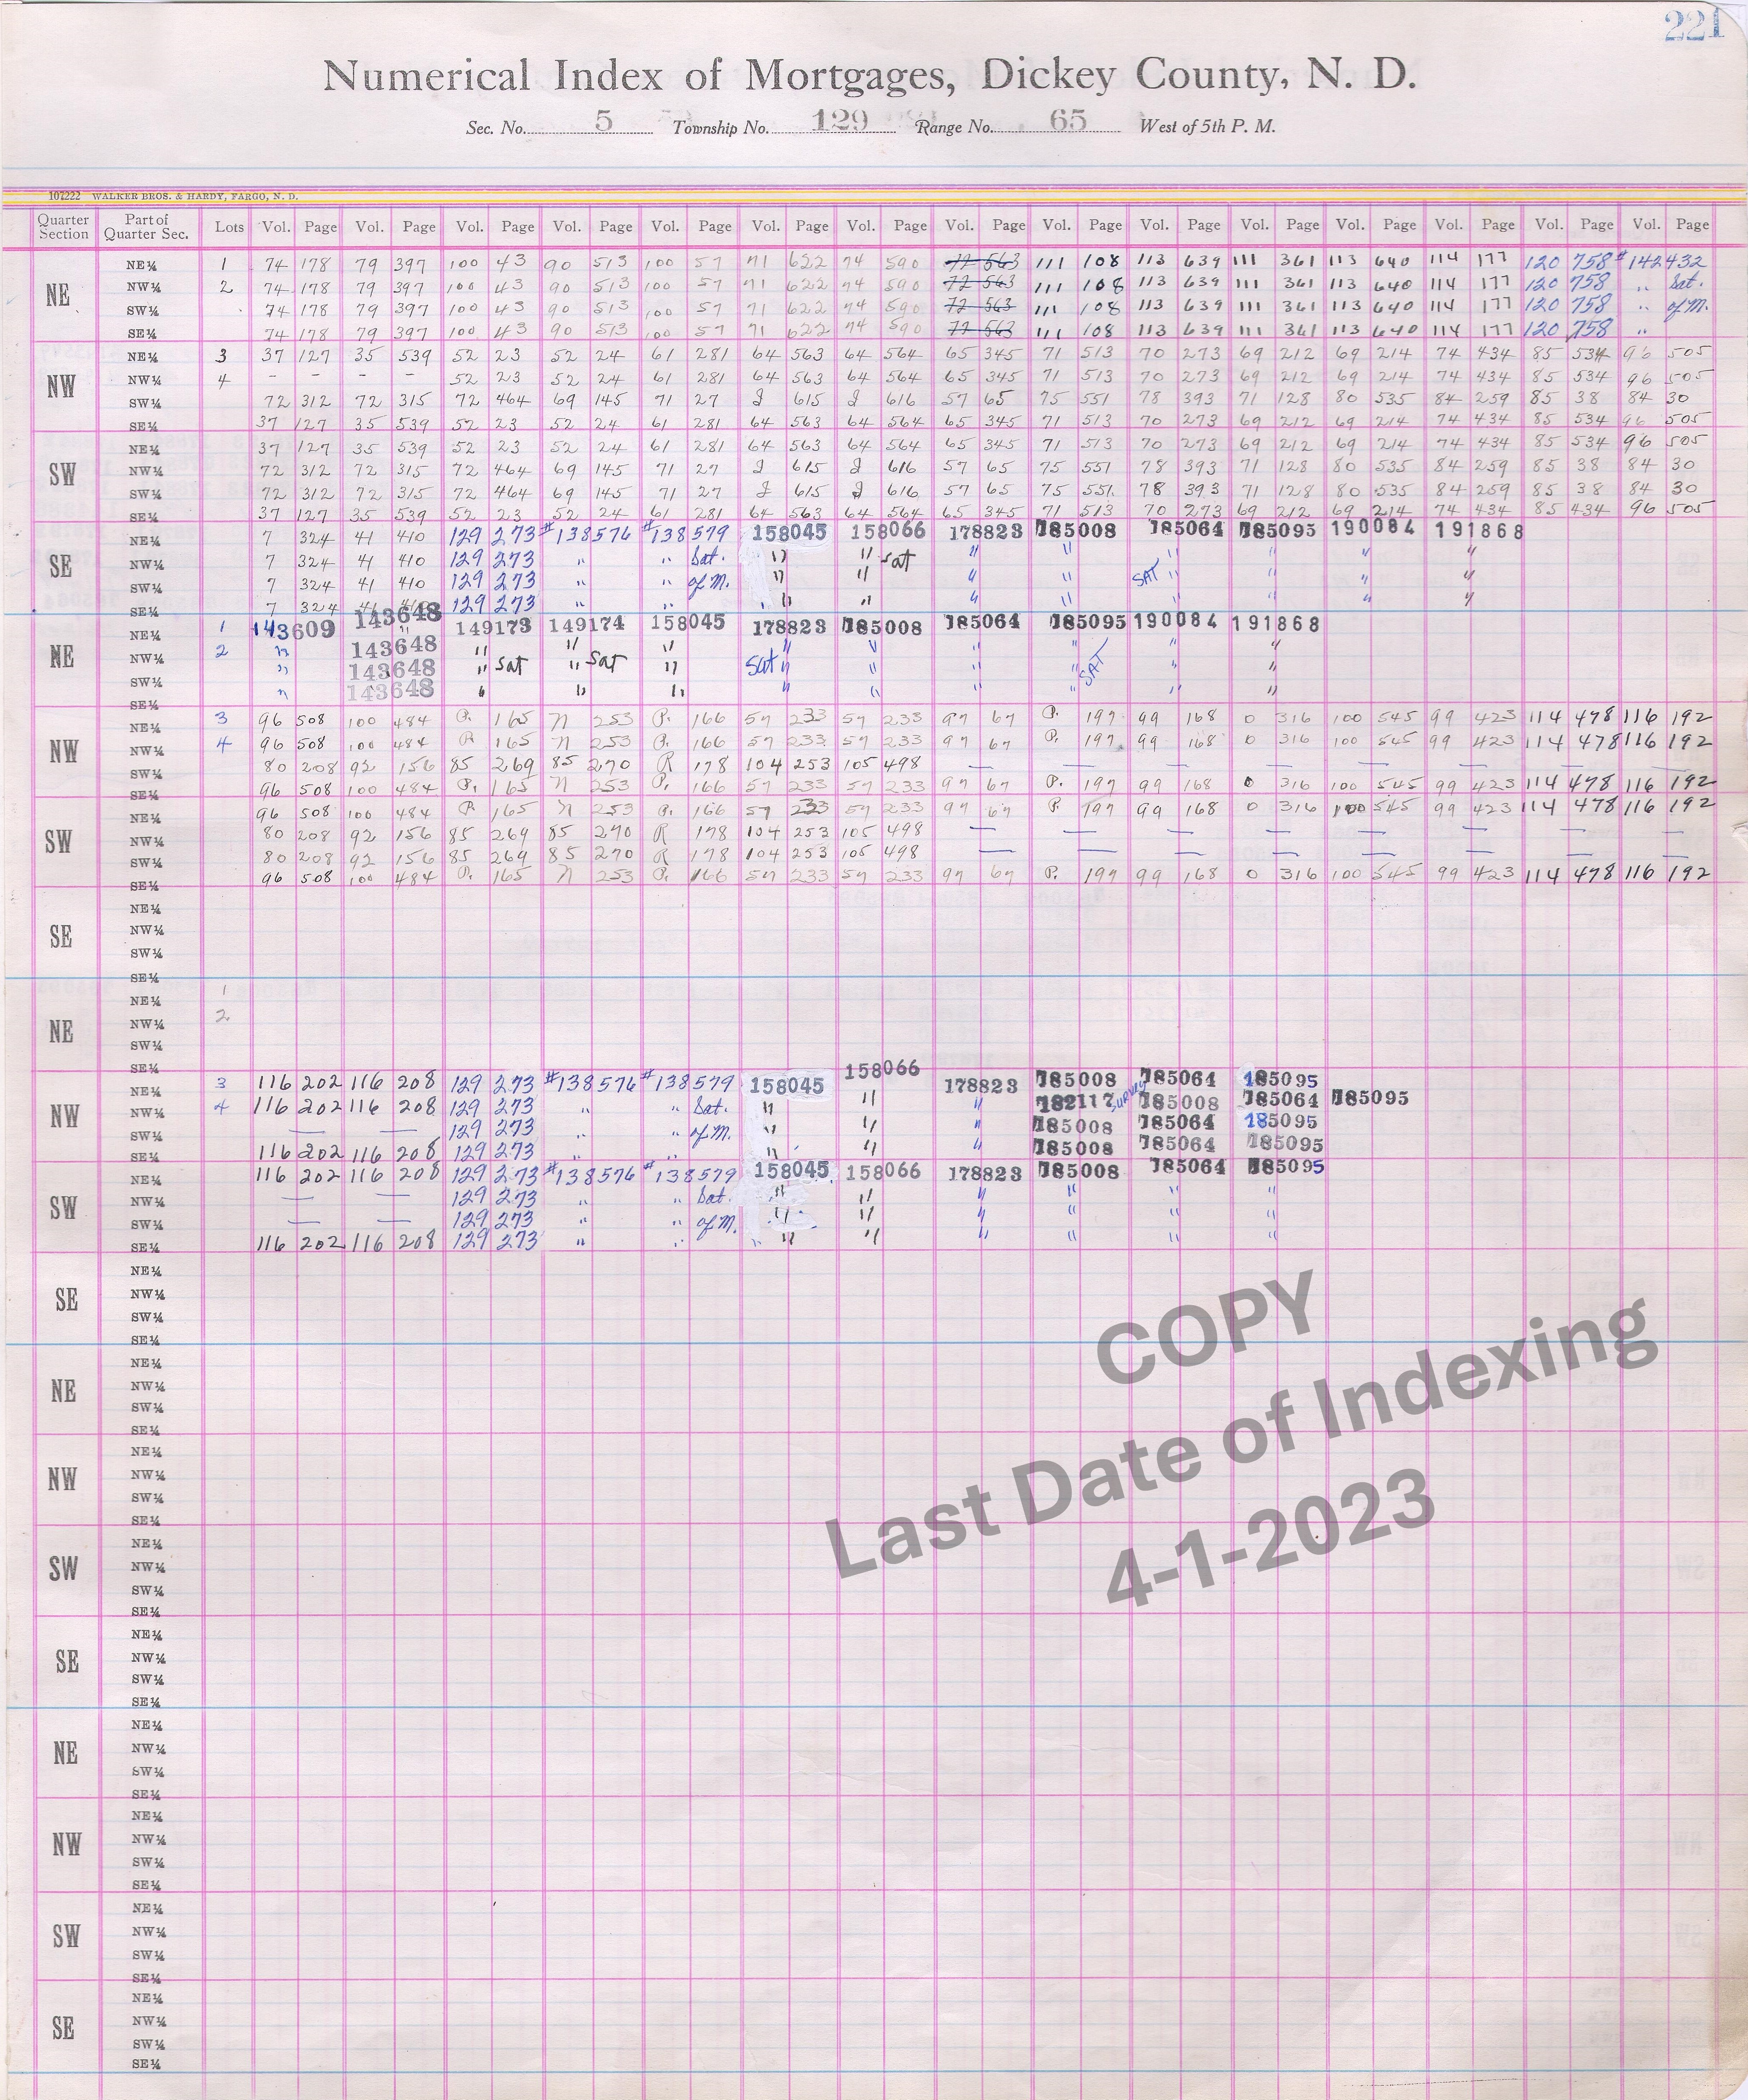 221
Numerical Index of Mortgages, Dickey County, N. D.
Sec. No. 5 Township No. 129 Range No. 65 West of 5th P. M.
107222 WALKER BROS. & HARDY, FARGO, N. D.
Quarter Section Part of Quarter Sec. Lots Vol. Page Vol. Page Vol. Page Vol. Page Vol. Page Vol. Page Vol. Page Vol. Page Vol. Page Vol. Page Vol. Page Vol. Page Vol. Page Vol. Page Vol. Page
NE
NE¼ 1 74 178 79 397 100 43 90 513 100 57 71 622 74 590 72 563 111 108 113 639 111 361 113 640 114 177 120 758 #142432
NW¼ 2 74 178 79 397 100 43 90 513 100 57 71 622 74 590 72 563 111 108 113 639 111 361 113 640 114 177 120 758 " Sat.
SW¼ 74 178 79 397 100 43 90 513 100 57 71 622 74 590 72 563 111 108 113 639 111 361 113 640 114 177 120 758 " of M.
SE¼ 74 178 79 397 100 43 90 513 100 57 71 622 74 590 72 563 111 108 113 639 111 361 113 640 114 177 120 758 "
NW
NE¼ 3 37 127 35 539 52 23 52 24 61 281 64 563 64 564 65 345 71 513 70 273 69 212 69 214 74 434 85 534 96 505
NW¼ 4 - - - - 52 23 52 24 61 281 64 563 64 564 65 345 71 513 70 273 69 212 69 214 74 434 85 534 96 505
SW¼ 72 312 72 315 72 464 69 145 71 27 J 615 J 616 57 65 75 551 78 393 71 128 80 535 84 259 85 38 84 30
SE¼ 37 127 35 539 52 23 52 24 61 281 64 563 64 564 65 345 71 513 70 273 69 212 69 214 74 434 85 534 96 505
SW
NE¼ 37 127 35 539 52 23 52 24 61 281 64 563 64 564 65 345 71 513 70 273 69 212 69 214 74 434 85 534 96 505
NW¼ 72 312 72 315 72 464 69 145 71 27 J 615 J 616 57 65 75 551 78 393 71 128 80 535 84 259 85 38 84 30
SW¼ 72 312 72 315 72 464 69 145 71 27 J 615 J 616 57 65 75 551 78 393 71 128 80 535 84 259 85 38 84 30
SE¼ 37 127 35 539 52 23 52 24 61 281 64 563 64 564 65 345 71 513 70 273 69 212 69 214 74 434 85 434 96 505
SE
NE¼ 7 324 41 410 129 273 #138576 #138579 158045 158066 178823 185008 185064 185095 190084 191868
NW¼ 7 324 41 410 129 273 " " Sat. " " Sat " " " " " "
SW¼ 7 324 41 410 129 273 " " of M. " " " " SAT " " " "
SE¼ 7 324 41 410 129 273 " " " " "
NE
NE¼ 1 143609 143648 149173 149174 158045 178823 185008 185064 185095 190084 191868
NW¼ 2 " 143648 " " " " " " " " "
SW¼ " 143648 " Sat " Sat " Sat " " " " SAT " "
SE¼ " 143648 " " " " " " " " "
NW
NE¼ 3 96 508 100 484 P. 165 N 253 P. 166 57 233 57 233 97 67 P. 197 99 168 O 316 100 545 99 423 114 478 116 192
NW¼ 4 96 508 100 484 P. 165 N 253 P. 166 57 233 57 233 97 67 P. 197 99 168 O 316 100 545 99 423 114 478 116 192
SW¼ 80 208 92 156 85 269 85 270 R 178 104 253 105 498 — — — — — — — —
SE¼ 96 508 100 484 P. 165 N 253 P. 166 57 233 57 233 97 67 P. 197 99 168 O 316 100 545 99 423 114 478 116 192
SW
NE¼ 96 508 100 484 P. 165 N 253 P. 166 57 233 57 233 97 67 P. 197 99 168 O 316 100 545 99 423 114 478 116 192
NW¼ 80 208 92 156 85 269 85 270 R 178 104 253 105 498 — — — — — — — —
SW¼ 80 208 92 156 85 269 85 270 R 178 104 253 105 498 — — — — — — — —
SE¼ 96 508 100 484 P. 165 N 253 P. 166 57 233 57 233 97 67 P. 197 99 168 O 316 100 545 99 423 114 478 116 192
SE
NE¼
NW¼
SW¼
SE¼
NE
NE¼ 1
NW¼ 2
SW¼
SE¼
NW
NE¼ 3 116 202 116 208 129 273 #138576 #138579 158045 158066 178823 185008 185064 185095
NW¼ 4 116 202 116 208 129 273 " " Sat. " " " 182117 Survey 185008 185064 185095
SW¼ — — 129 273 " " of M. " " " 185008 185064 185095
SE¼ 116 202 116 208 129 273 " " " " " 185008 185064 185095
SW
NE¼ 116 202 116 208 129 273 #138576 #138579 158045 158066 178823 185008 185064 185095
NW¼ — — 129 273 " " Sat. " " " " " "
SW¼ — — 129 273 " " of M. " " " " " "
SE¼ 116 202 116 208 129 273 " " " " " " " "
SE
NE¼
NW¼
SW¼
SE¼
NE
NE¼
NW¼
SW¼
SE¼
NW
NE¼
NW¼
SW¼
SE¼
SW
NE¼
NW¼
SW¼
SE¼
SE
NE¼
NW¼
SW¼
SE¼
NE
NE¼
NW¼
SW¼
SE¼
NW
NE¼
NW¼
SW¼
SE¼
SW
NE¼
NW¼
SW¼
SE¼
SE
NE¼
NW¼
SW¼
SE¼
COPY
Last Date of Indexing
4-1-2023